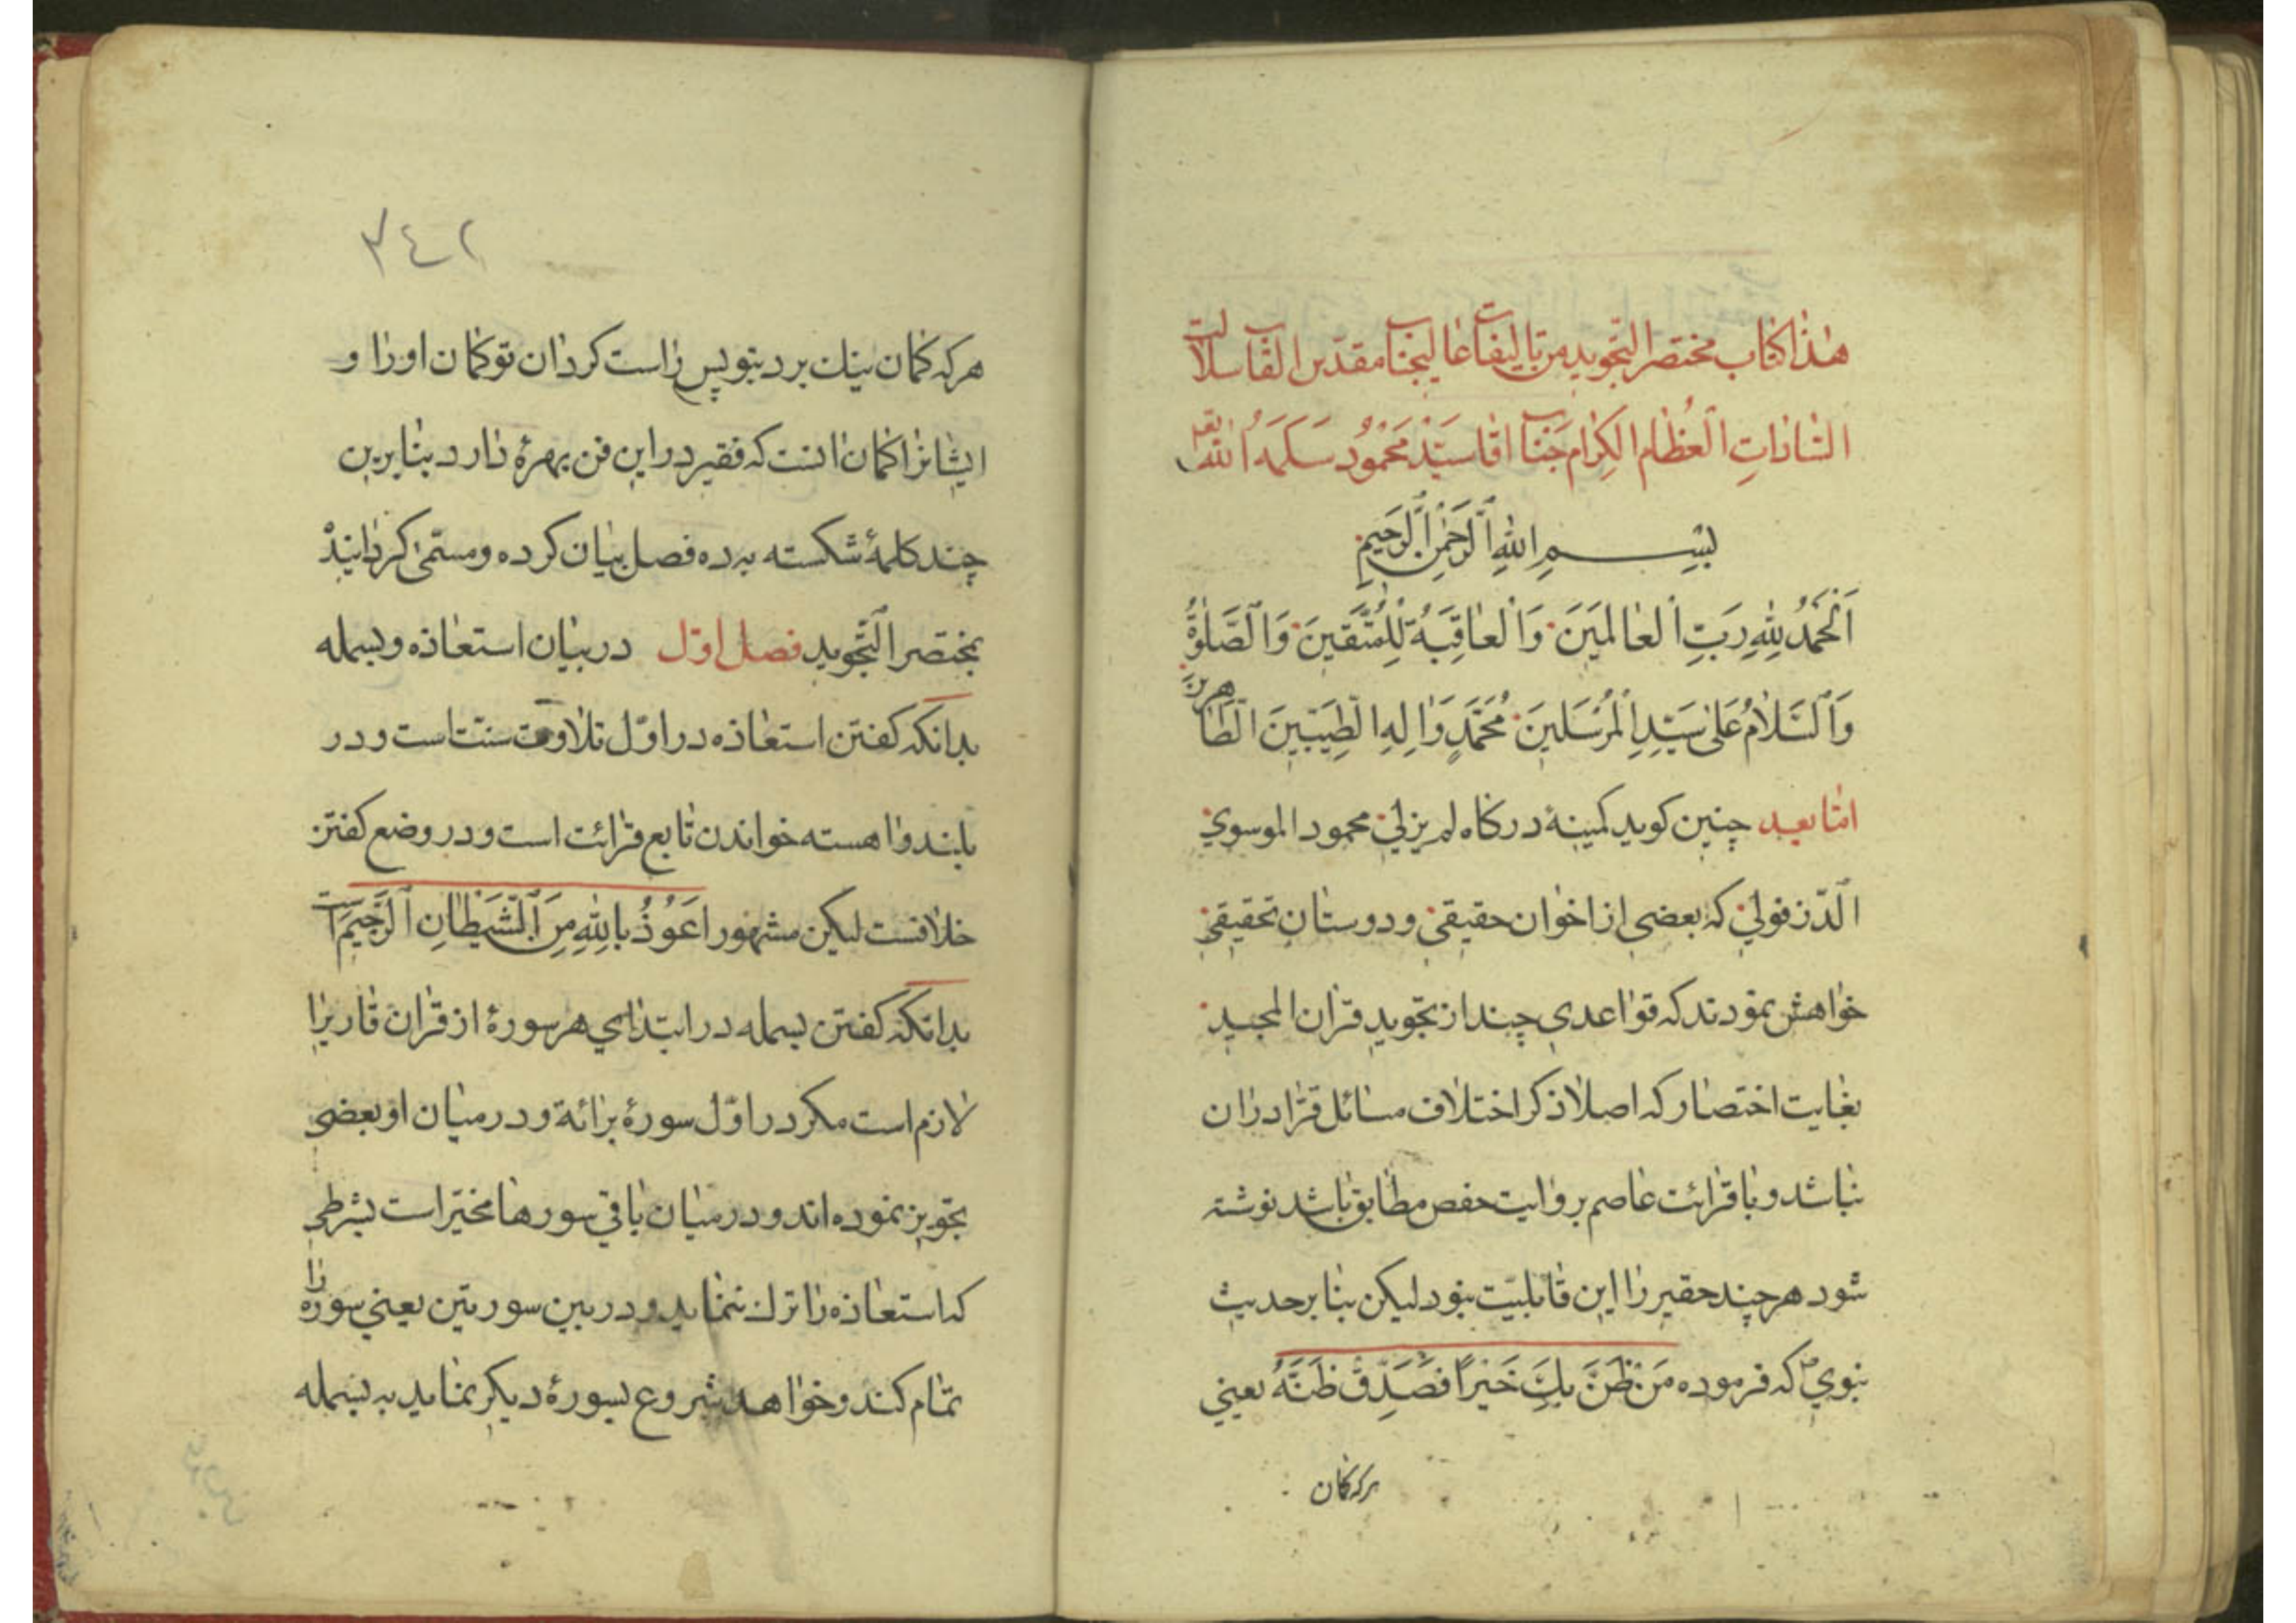 هٰذا کتاب مختصر التّجوید من تالیفات عالیجناب مقدّس القاب سلالت
السّادات العُظّام الکِرام جَناب اقا سیّد مَحمُود سَلَّمَهُ اللّه تعم
بِسْمِ اللهِ الرَّحْمٰنِ الرَّحیمِ
اَلْحَمْدُ لِلّٰهِ رَبِّ الْعٰالَمینَ وَالْعٰاقِبَةُ لِلْمُتَّقینَ وَالصَّلوٰةُ
وَالسَّلٰامُ عَلیٰ سَیِّدِ الْمُرْسَلینَ مُحَمَّدٍ وَاٰلِهِ الطَّیِّبینَ الطّٰاهرینَ
امّا بعد چنین کوید کمینۀ درکاه لم یزلی محمود الموسوی
الدّزفولی که بعضی از اخوان حقیقی و دوستان تحقیقی
خواهش نمودند که قواعدی چند از تجوید قران المجید
بغایت اختصار که اصلا ذکر اختلاف مسائل قرّا دران
نباشد و با قرائت عاصم بروایت حفص مطابق باشد نوشته
شود هر چند حقیر را این قابلیّت نبود لیکن بنا بر حدیث
نبوی ص که فرموده مَنْ ظَنَّ بِكَ خَیْراً فَصَدِّقْ ظَنَّهُ یعنی
هرکه کمان
٣٤٢
هرکه کمان نیك برد بتو پس راست کردان تو کمان او را و
ایشانرا کمان انست که فقیر در این فن بهرۀ دارد بنابرین
چند کلمۀ شکسته به ده فصل بیان کرده و مسمّی کردانید
بمختصر التّجوید فصل اوّل در بیان استعاذه و بسمله
بدانکه کفتن استعاذه در اوّل تلاوت سنّت است و در
بلند و اهسته خواندن تابع قرائت است و در وضع کفتن
خلافست لیکن مشهور اَعُوذُ بِاللّٰهِ مِنَ الشَّیْطٰانِ الرَّجیمِ است
بدانکه کفتن بسمله در ابتدای هر سورۀ از قران قاریرا
لازم است مکر در اوّل سورۀ برائة و در میان او بعضی
تجویز نموده اند و در میان باقی سورها مخیّر است بشرطی
که استعاذه را ترك ننماید و در بین سورتین یعنی سوره را
تمام کند و خواهد شروع بسورۀ دیکر نماید به بسمله